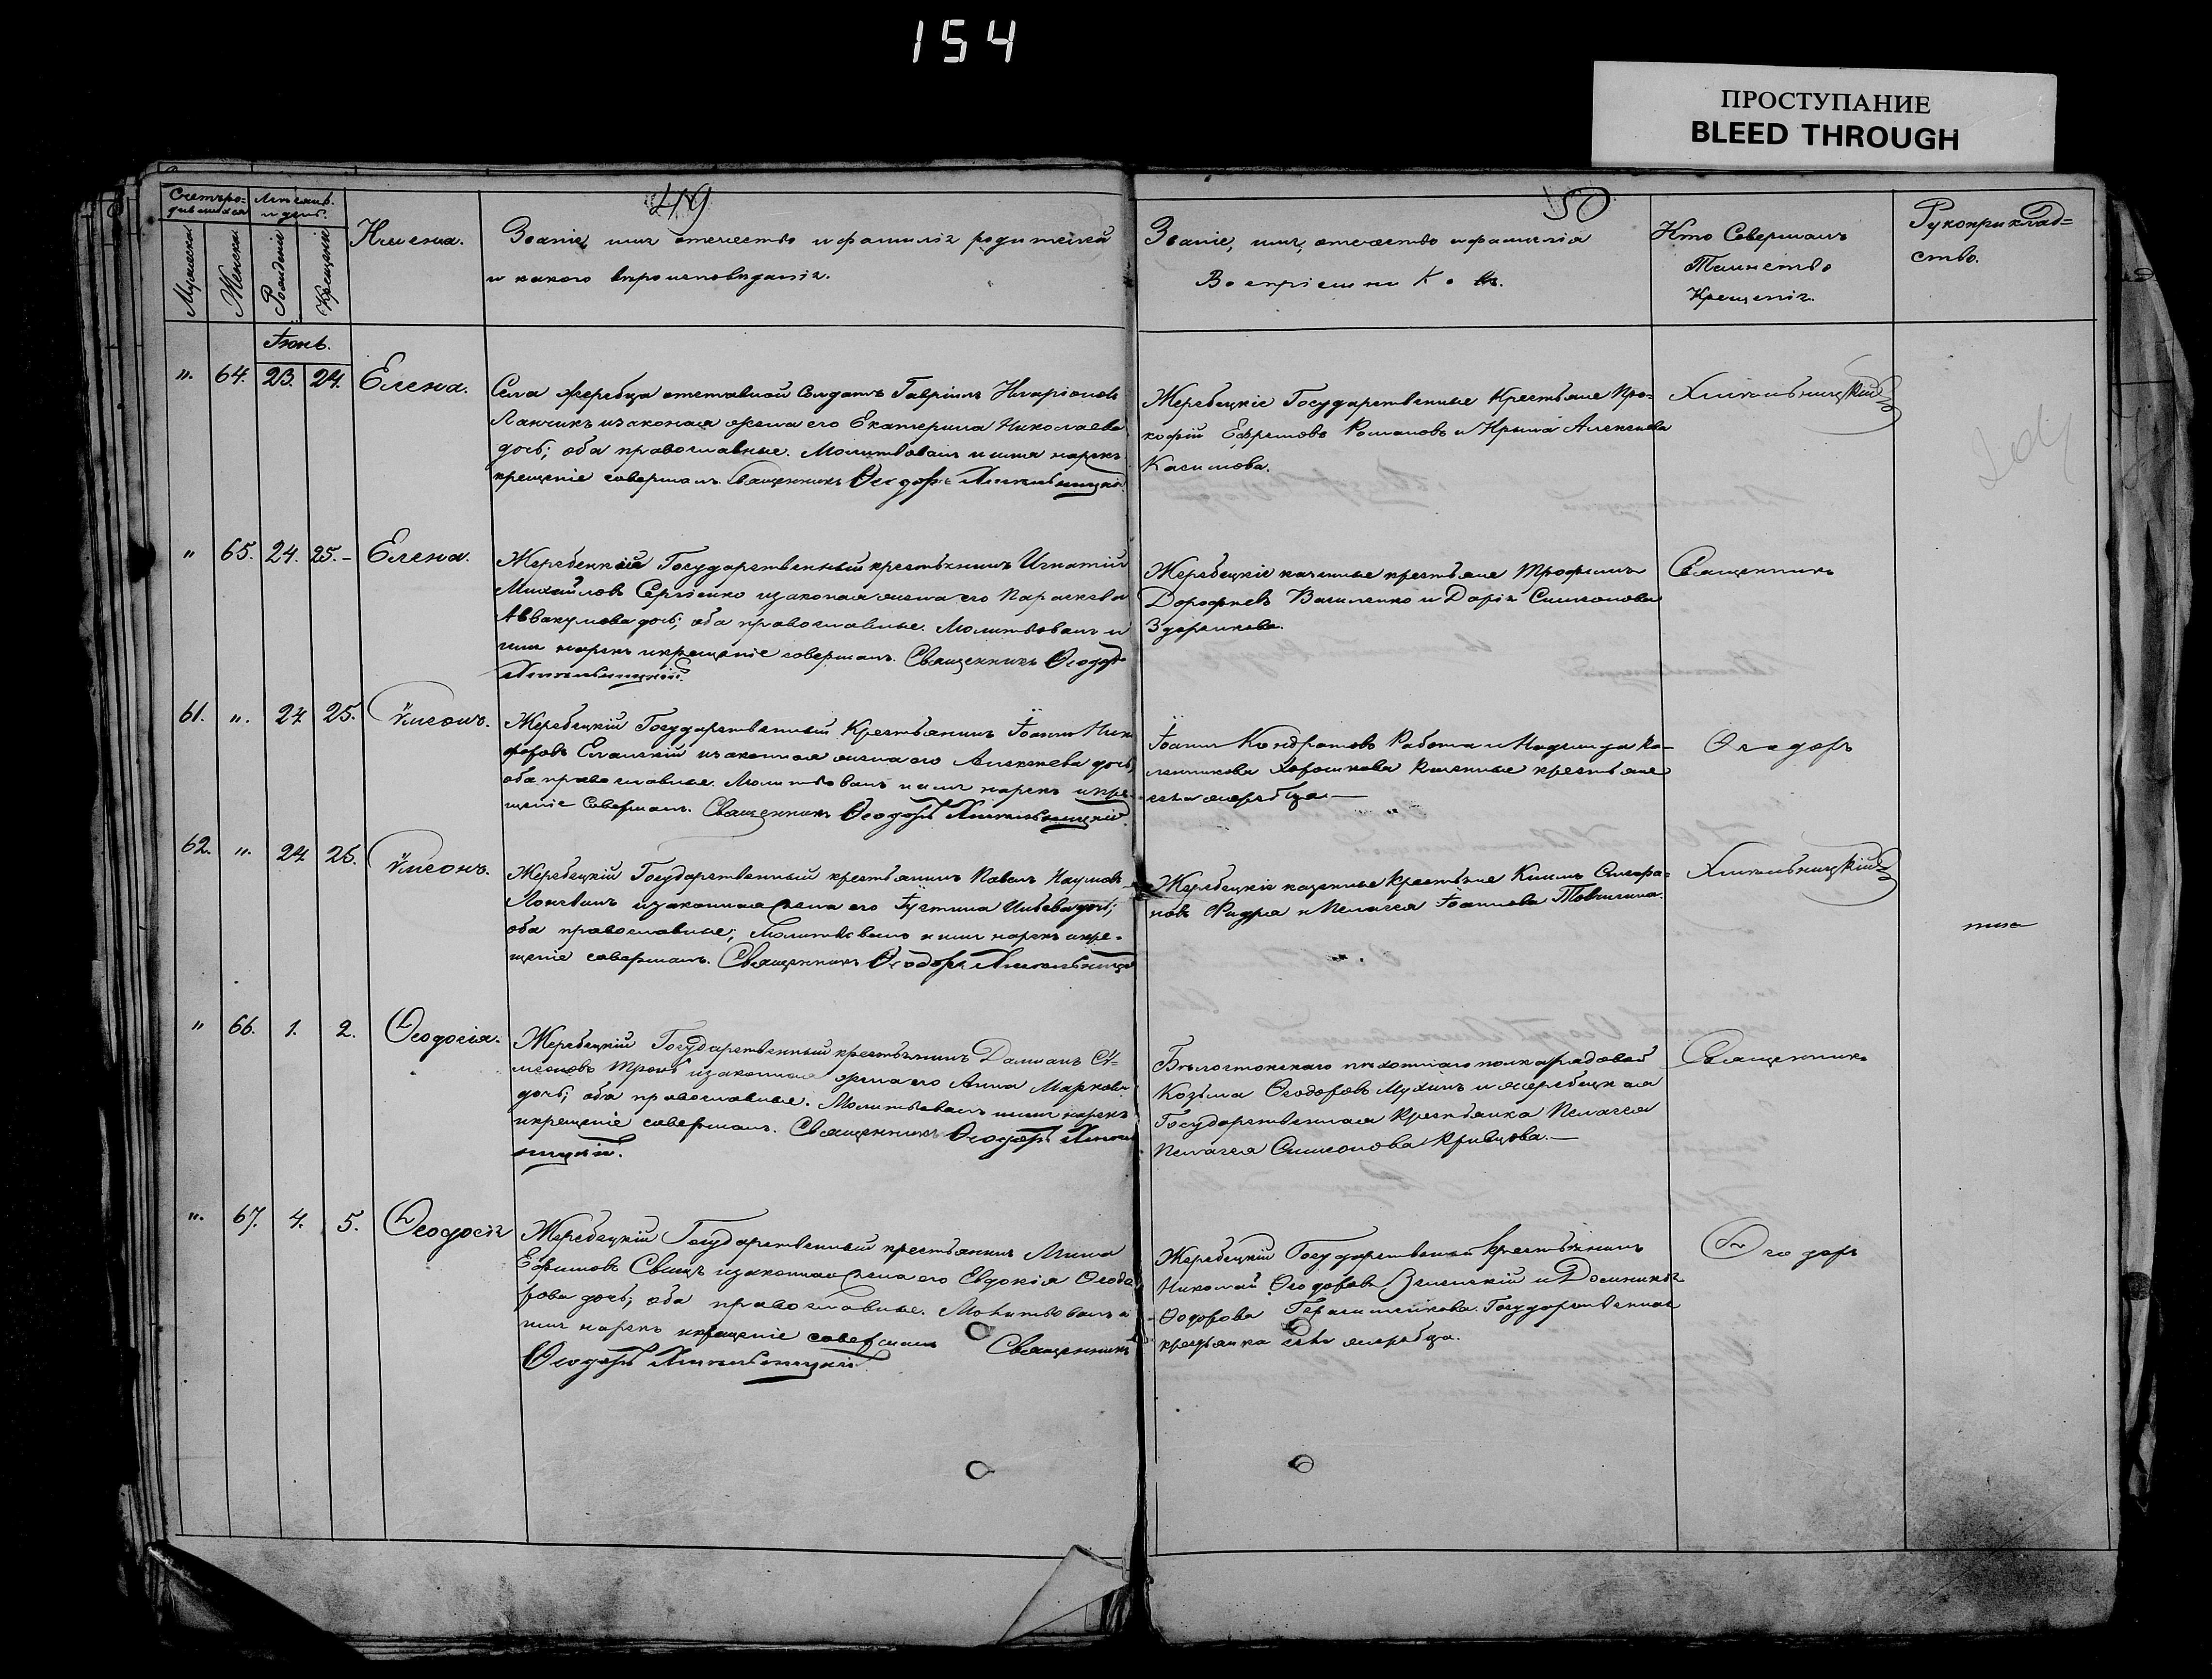 154
ПРОСТУПАНИЕ
BLEED THROUGH
49
50
Счетъ ро-
дившихся
Мужеска
Женска
Месяцъ
и день.
Рожденія
Крещенія
Имена.
Званіе, имя отечество и фамилія родителей
и какого вѣроисповѣданія.
Званіе, имя, отечество и фамилія
Воспріемниковъ.
Кто Совершалъ
Таинство
Крещенія.
Рукоприклад=
ство.
Іюнь.
". 64. 23. 24. Елена.
Села Жеребца отставной Солдатъ Гавріилъ Иларіоновъ
Ланчикъ и законная жена его Екатерина Николаева
дочь; оба православные. Молитвовалъ и имя нарекъ
крещеніе совершалъ Священникъ Ѳеодоръ Хмельницкій
Жеребецкіе Государственные Крестьяне Про-
кофій Ефремовъ Романовъ и Ирина Алексеева
Касимова.
Хмельницкій
" 65. 24. 25.- Елена.
Жеребецкій Государственный крестьянинъ Игнатій
Михайловъ Сергіенко и законная жена его Параскева
Аввакумова дочь; оба православные. Молитвовалъ и
имя нарекъ и крещеніе совершалъ. Священникъ Ѳеодоръ
Хмельницкій.
Жеребецкіе казенные крестьяне Трофимъ
Дорофеевъ Василенко и Дарія Симеонова
Здорикова.
Священникъ
61. ". 24 25. Ѵмеонъ.
Жеребецкій Государственный Крестьянинъ Іоаннъ Ники
форовъ и законная жена его Алексеева дочь,
оба православные. Молитвовалъ и имя нарекъ и кре-
щеніе Совершалъ. Священникъ Ѳеодоръ Хмельницкій.
Іоаннъ Кондратовъ Работа и Надежда Ка-
линикова Хорошкова Казенные крестьяне
села Жеребца.—
Ѳеодоръ
62. ". 24 25. Ѵмеонъ.
Жеребецкій Государственный крестьянинъ Павелъ Наумовъ
и законная жена его Іустина Ильева дочь;
оба православные; Молитвовалъ и имя нарекъ и кре-
щеніе совершалъ. Священникъ Ѳеодоръ Хмельницкій
Жеребецкіе казенные Крестьяне Климъ Стефа-
новъ и Пелагея Іоаннова
Хмельницкій
" 66. 1. 2. Ѳеодосія.
Жеребецкій Государственный крестьянинъ Даміанъ Си-
меоновъ и законная жена его Анна Маркова
дочь; оба православные. Молитвовалъ и имя нарекъ
и крещеніе совершалъ. Священникъ Ѳеодоръ Хмель
ницкій.
Бѣлостокскаго пѣхотнаго полка рядовой
Козьма Ѳеодоровъ Мухинъ и жеребецкая
Государственная Крестьянка Пелагея
Пелагея Симеонова Кривцова.—
Священникъ
". 67. 4. 5. Ѳеодосія
Жеребецкій Государственный крестьянинъ Мина
Ефимовъ и законная жена его Евдокія Ѳеодо
рова дочь; оба православные. Молитвовалъ и
имя нарекъ и крещеніе совершалъ Священникъ
Ѳеодоръ Хмельницкій.
Жеребецкій Государственный Крестьянинъ
Николай Ѳеодоровъ Зеленскій и Доминикія
Ѳедорова Герасименкова. Государственная
крестьянка села жеребца.
Ѳеодоръ